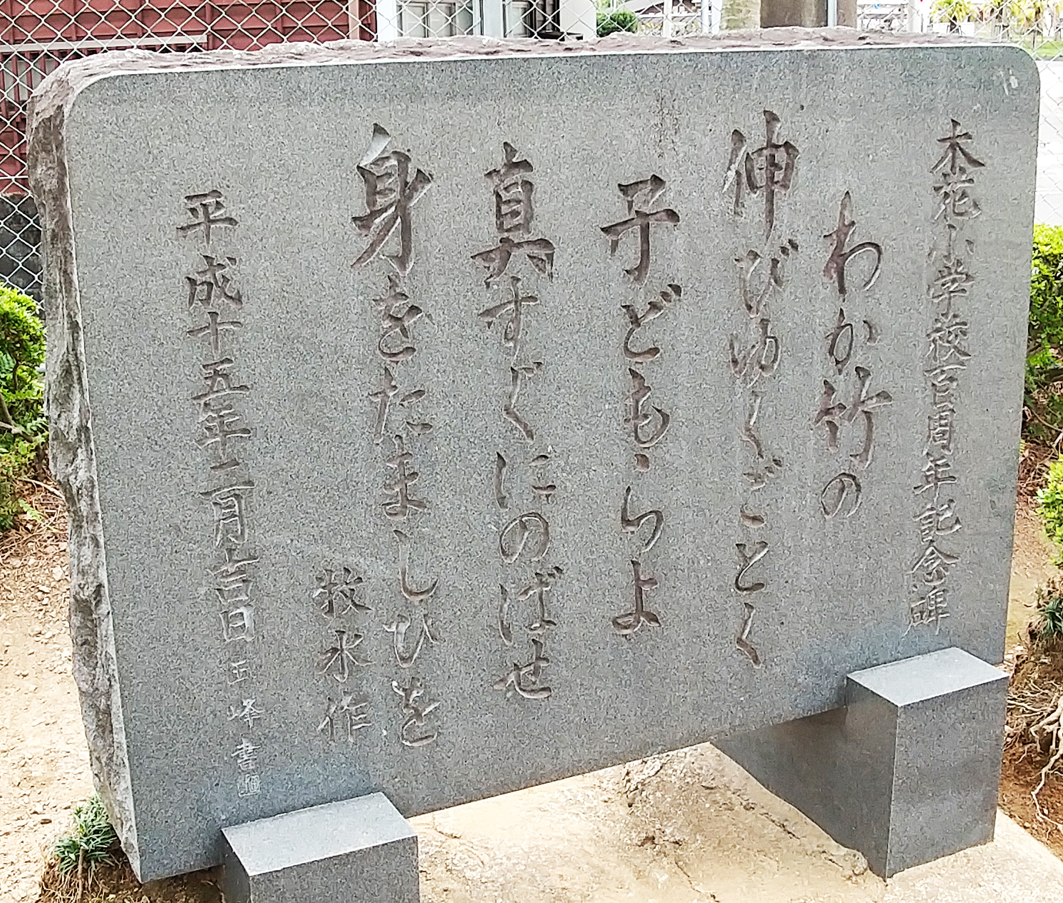 木花小学校百周年記念碑
わか竹の
伸びゆくごとく
子どもらよ
真すぐにのばせ
身をたましひを
牧水作
平成十五年二月吉日
玉峰書